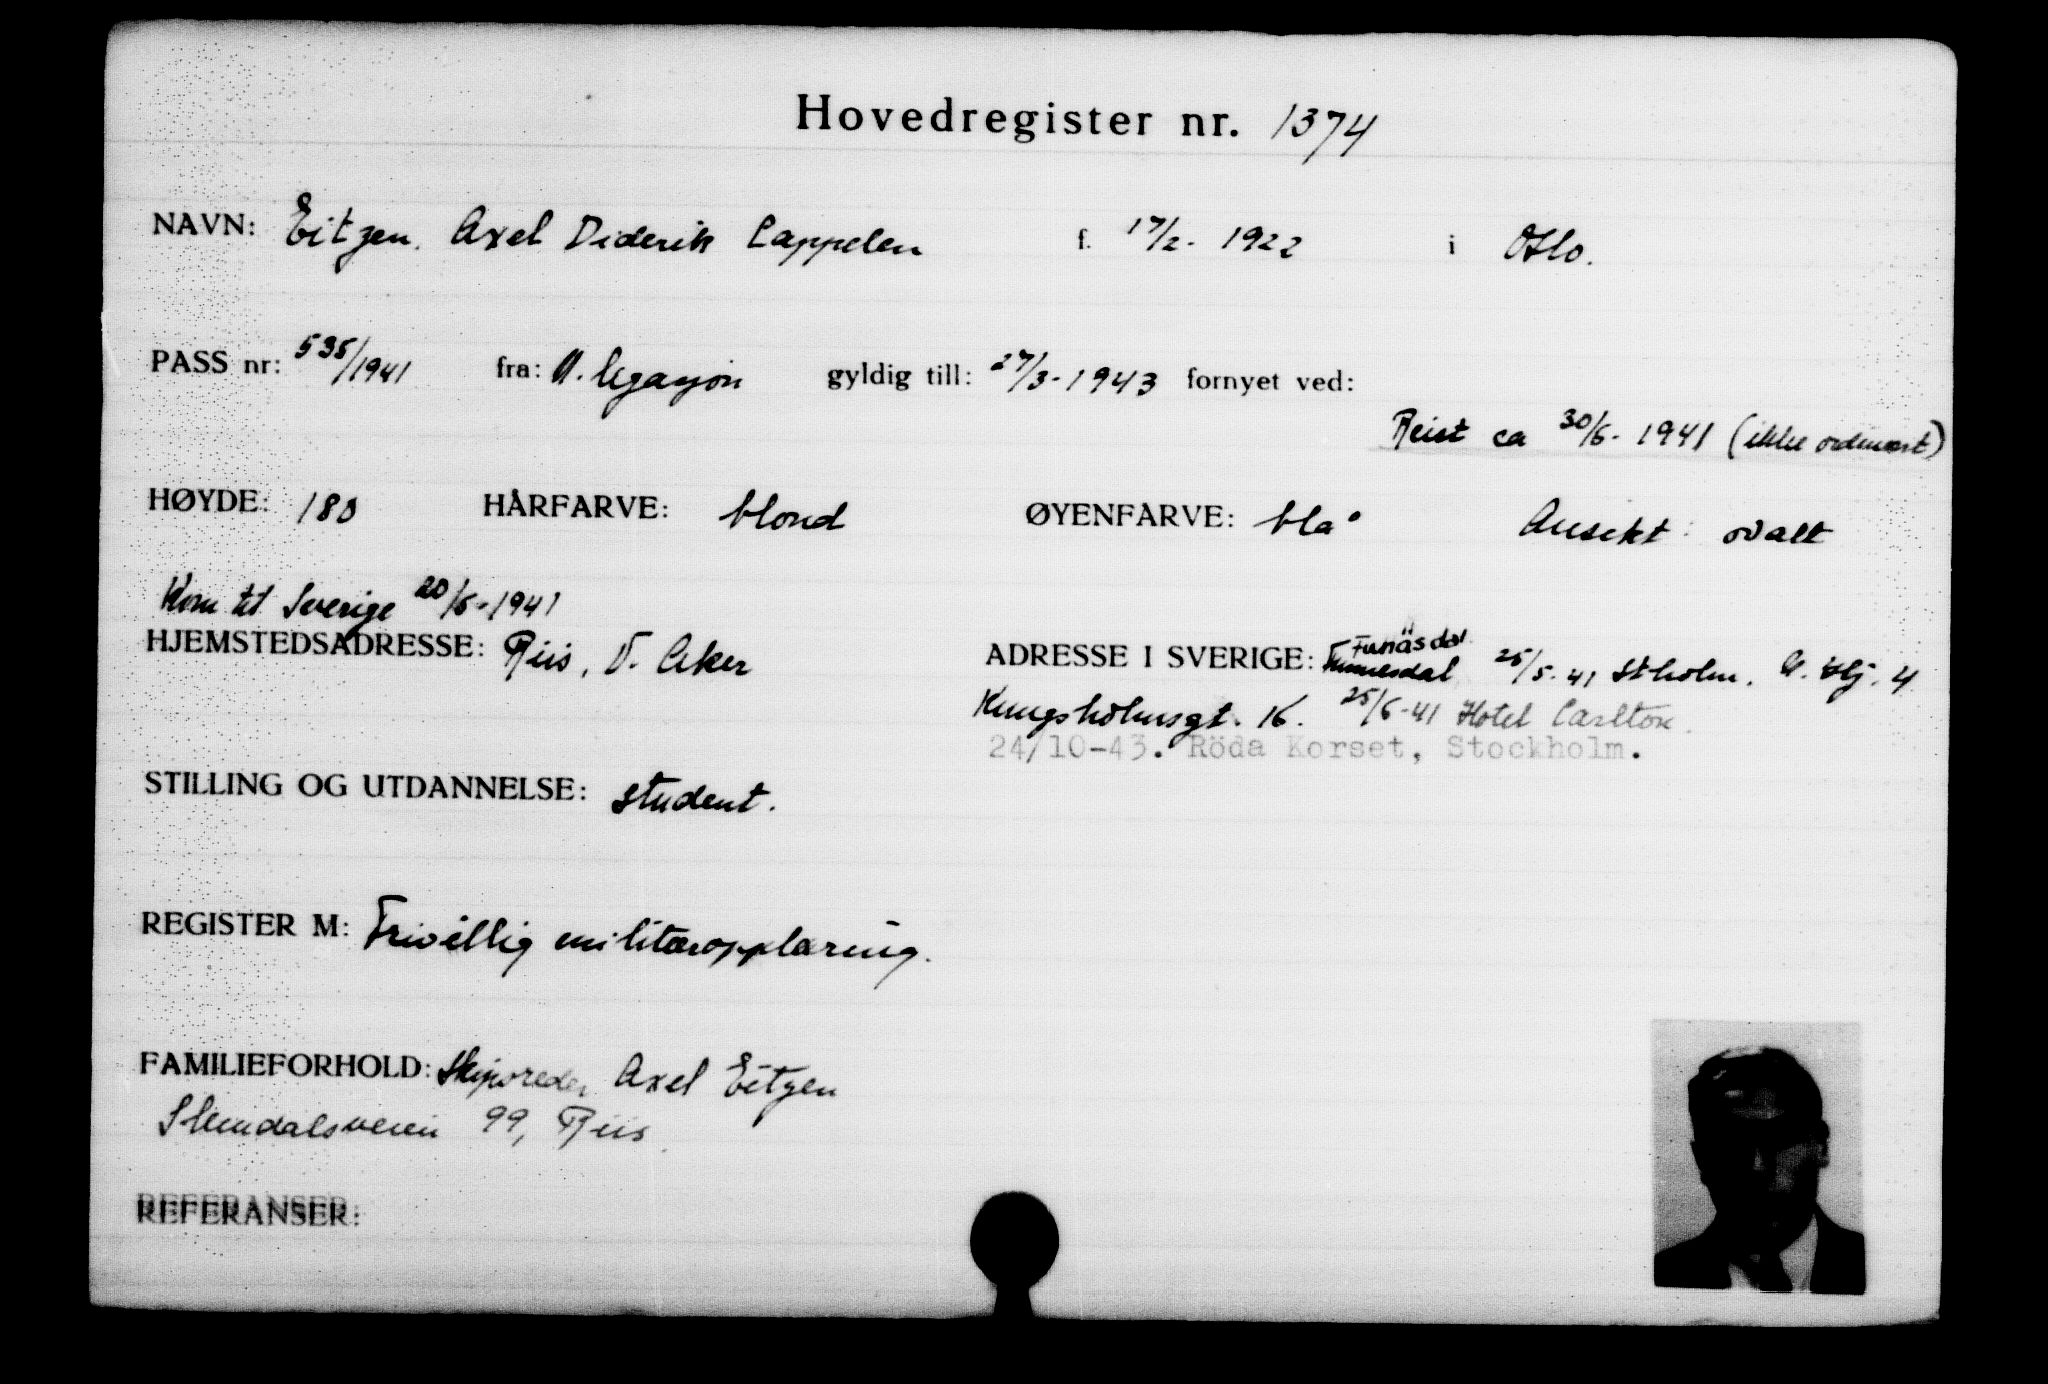 Hovedregister nr. 1374
NAVN: Eitzen. Axel Diderik Cappelen f. 17/2- 1922 i Oslo.
PASS nr: 535/1941 fra: N. legasjon gyldig till: 27/3-1943 fornyet ved:
Reist ca 30/6- 1941 (ikke ordinært)
HØYDE: 180 HÅRFARVE: blond ØYENFARVE: blå Ansikt: ovalt
Kom til Sverige 20/5-1941
HJEMSTEDSADRESSE: Riis, V. Aker ADRESSE I SVERIGE: Funäsdal 25/5-41 Stholm. 4
Kungsholmsgt. 16. 25/6-41 Hotel Carlton.
24/10-43. Röda Korset, Stockholm.
STILLING OG UTDANNELSE: student.
REGISTER M: Frivillig militæropplæring.
FAMILIEFORHOLD: Skipsreder Axel Eitzen
Slemdalsveien 99, Riis.
REFERANSER: